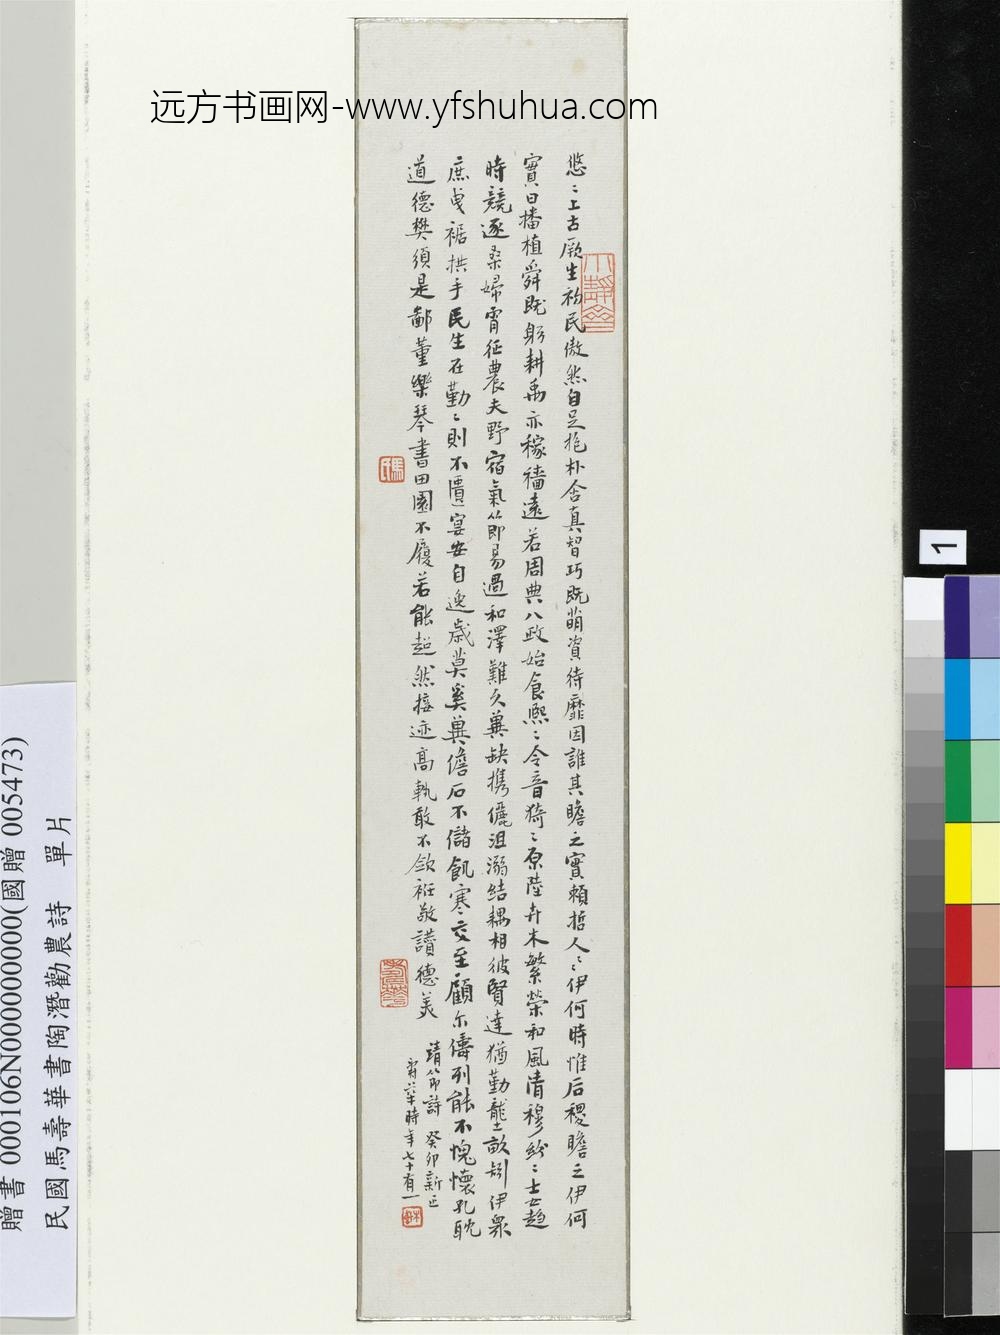 远方书画网-www.yfshuhua.com
悠〻上古厥生初民傲然自足抱朴含真智巧既萌資待靡因誰其贍之實賴哲人〻伊何時惟后稷贍之伊何
實曰播植舜既躬耕禹亦稼穡遠若周典八政始食熙〻令音猗〻原陸卉木繁榮和風清穆紛〻士女趨
時競逐桑婦宵征農夫野宿氣節易過和澤難久冀缺携儷沮溺結耦相彼賢達猶勤壟畝矧伊衆
庶曳裾拱手民生在勤〻則不匱宴安自逸歲莫奚冀儋石不儲飢寒交至顧尔儔列能不愧懷孔耽
道德樊須是鄙董樂琴書田園不履若能超然接迹高軌敢不斂衽敬讚德美
靖節詩 癸卯新正
時年七十有一
馬氏
贈書 000106N000000000(國贈 005473)
民國馬壽華書陶潛勸農詩 單片
1